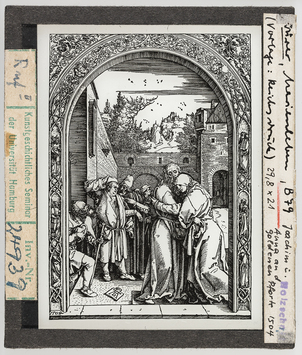 Dürer, Marienleben, B 79
Joachim u.
Anna an d.
goldenen Pforte 1504
(Vorlage: Reichsdruck) 29,8 x 21
Holzschn.
Kunstgeschichtliches Seminar
der Universität Hamburg
Inv.-Nr.
24939